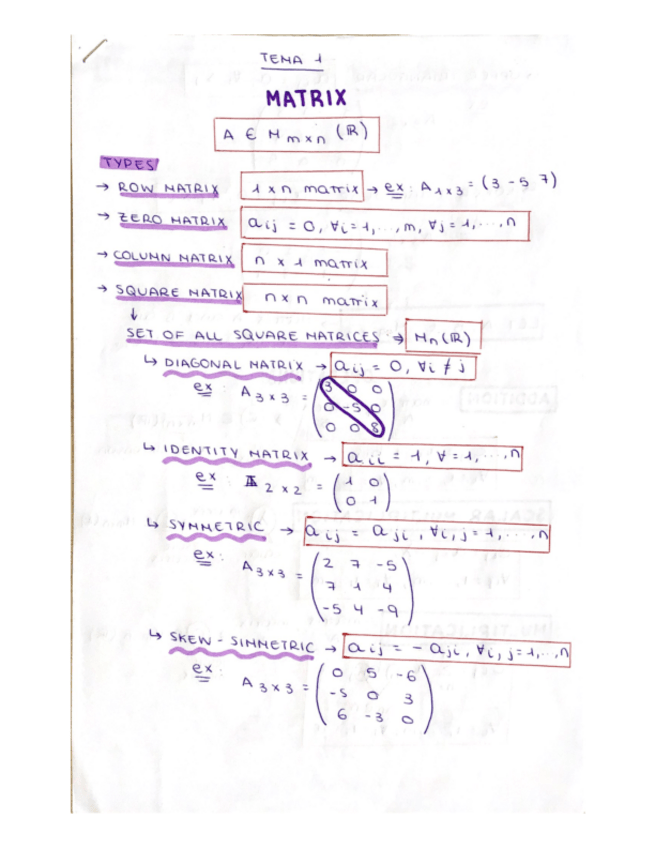 TEMA 1
MATRIX
A ∈ M m×n (ℝ)
TYPES
→ ROW MATRIX 1 x n matrix → ex: A 1x3 = (3 -5 7)
→ ZERO MATRIX a ij = 0, ∀i = 1, ..., m, ∀j = 1, ..., n
→ COLUMN MATRIX n x 1 matrix
→ SQUARE MATRIX n x n matrix
↓
SET OF ALL SQUARE MATRICES → Mn (ℝ)
↳ DIAGONAL MATRIX → a ij = 0, ∀i ≠ j
ex: A 3x3 = (3 0 0
0 -5 0
0 0 8)
↳ IDENTITY MATRIX → a ii = 1, ∀ = 1, ..., n
ex: I 2x2 = (1 0
0 1)
↳ SYMMETRIC → a ij = a ji, ∀i, j = 1, ..., n
ex: A 3x3 = (2 7 -5
7 1 4
-5 4 -9)
↳ SKEW-SIMMETRIC → a ij = - a ji, ∀i, j = 1, ..., n
ex A 3x3 = (0 5 -6
-5 0 3
6 -3 0)